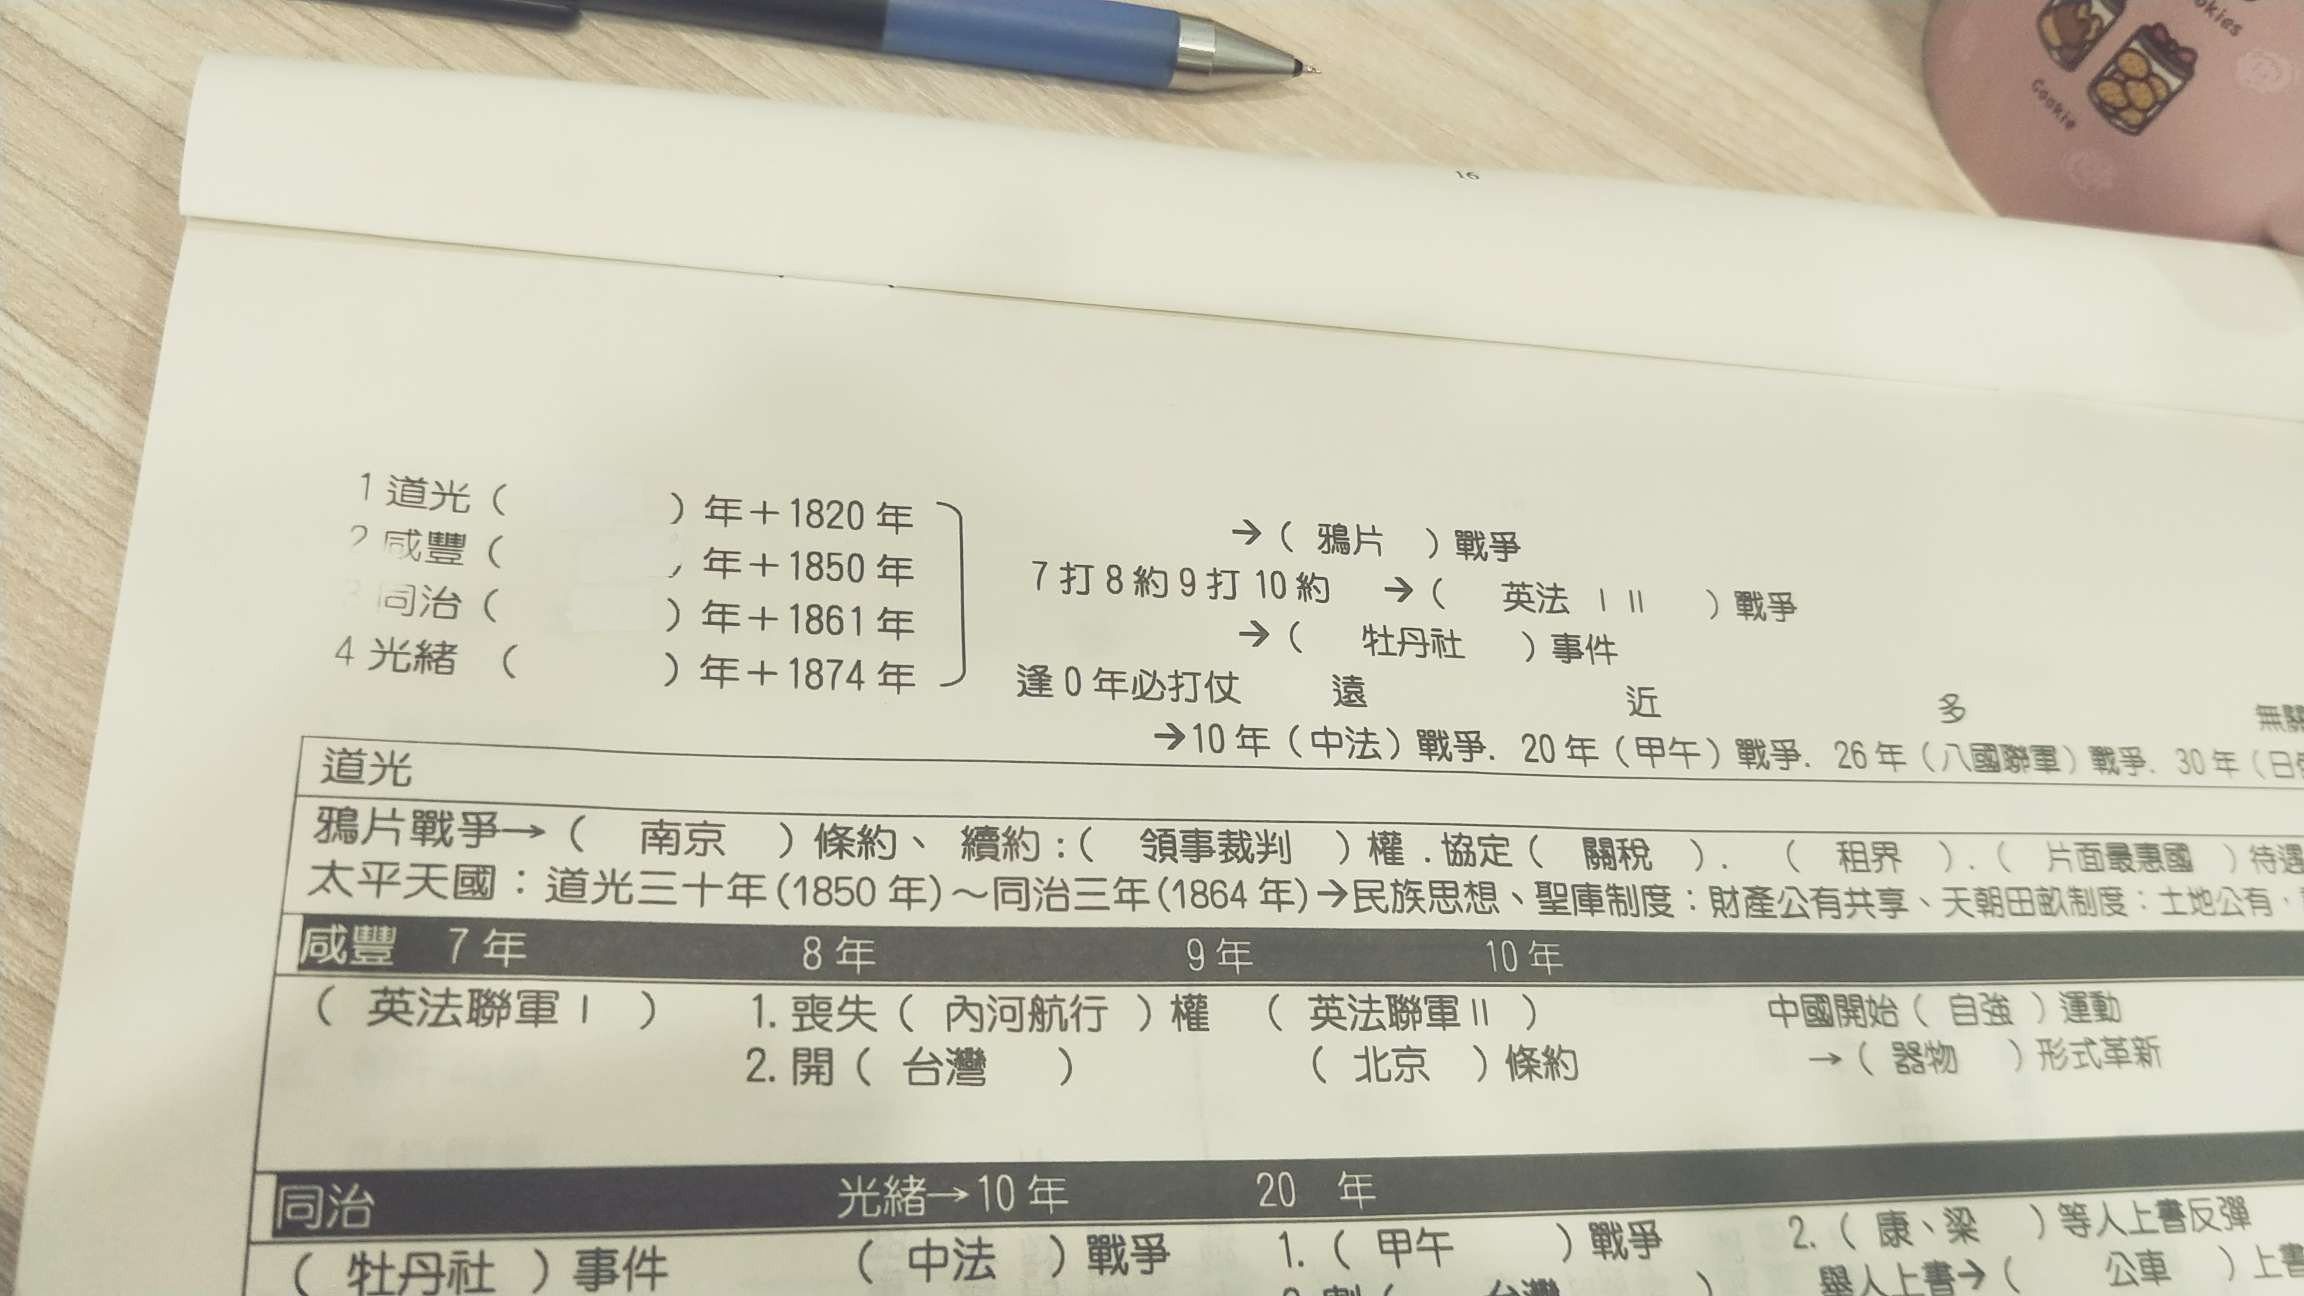 Cookies
Cookie
16
1 道光（　　　）年＋1820 年
→（ 鴉片 ）戰爭
2 咸豐（　　　 年＋1850 年
7 打 8 約 9 打 10 約 →（ 英法 I II ）戰爭
3 同治（　　　）年＋1861 年
→（ 牡丹社 ）事件
4 光緒 （　　　）年＋1874 年
逢 0 年必打仗 遠 近 多 無關
→10 年（中法）戰爭. 20 年（甲午）戰爭. 26 年（八國聯軍）戰爭. 30 年（日
道光
鴉片戰爭→（ 南京 ）條約、 續約：（ 領事裁判 ）權 .協定（ 關稅 ）. （ 租界 ）.（ 片面最惠國 ）待遇
太平天國：道光三十年(1850 年)～同治三年(1864 年)→民族思想、聖庫制度：財產公有共享、天朝田畝制度：土地公有，
咸豐 7 年 8 年 9 年 10 年
（ 英法聯軍 I ） 1. 喪失（ 內河航行 ）權 （ 英法聯軍 II ） 中國開始（ 自強 ）運動
2. 開（ 台灣 ） （ 北京 ）條約 →（ 器物 ）形式革新
同治 光緒→10 年 20 年
（ 牡丹社 ）事件 （ 中法 ）戰爭 1.（ 甲午 ）戰爭 2.（ 康、梁 ）等人上書反彈
舉人上書→（ 公車 ）上書
台灣 ）